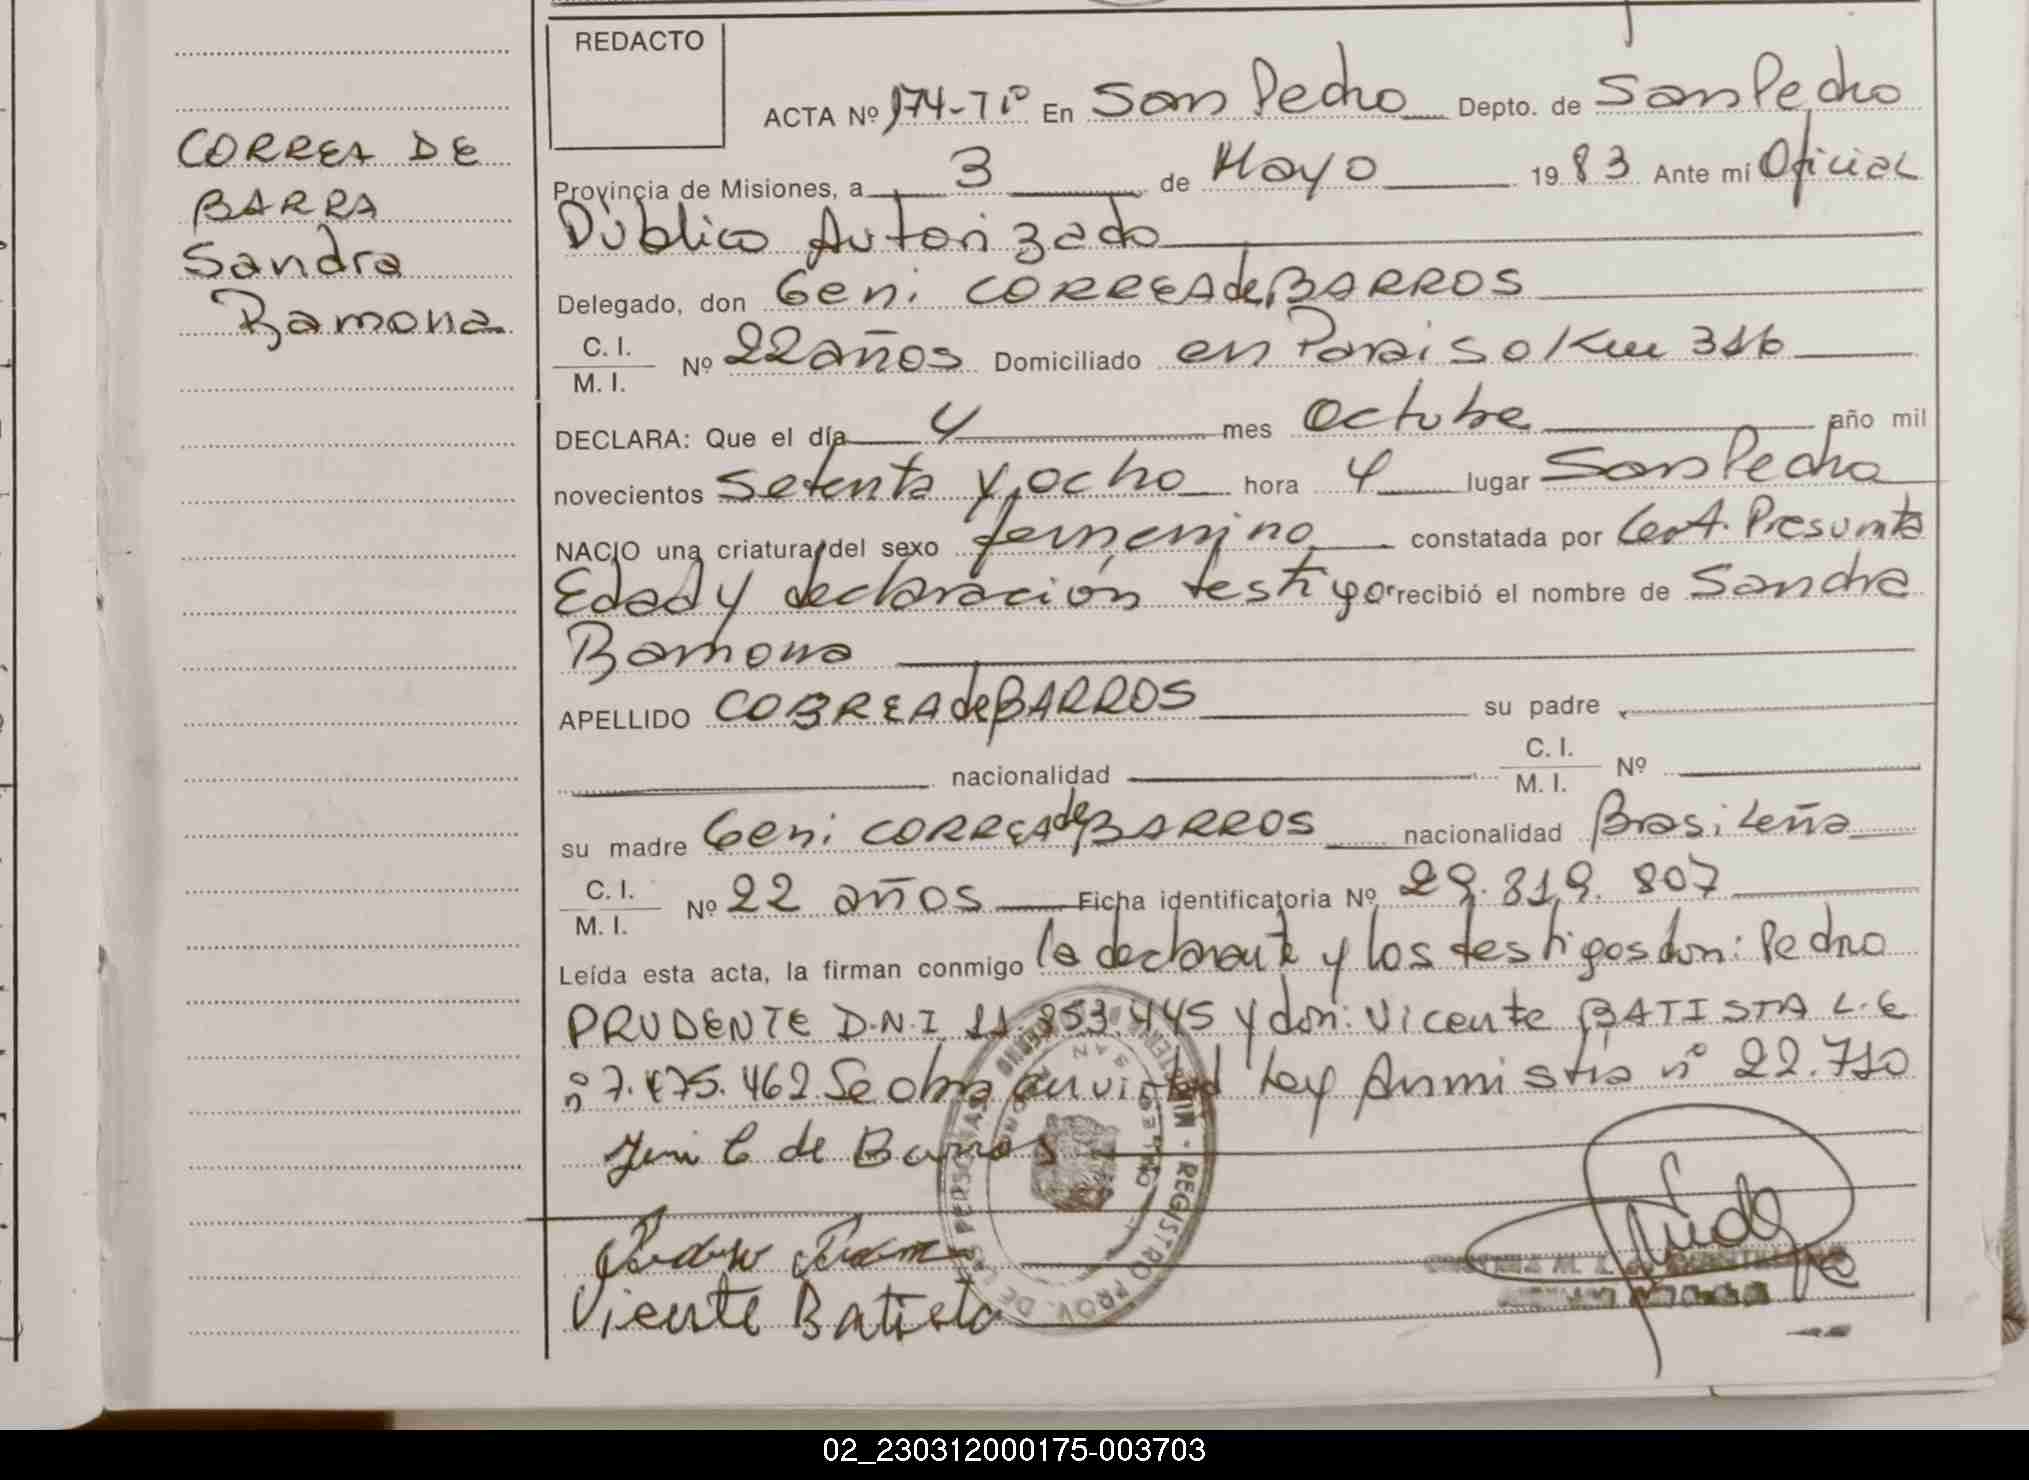 REDACTO
CORREA DE
BARRA
Sandra
Ramona
ACTA Nº 174-Tº En San Pedro Depto. de San Pedro
Provincia de Misiones, a 3 de Mayo 1983 Ante mi Oficial
Público Autorizado
Delegado, don Geni CORREA de BARROS
C. I.
M. I. Nº 22 años Domiciliado en Paraiso Km 316
DECLARA: Que el día 4 mes octubre año mil
novecientos setenta y ocho hora 4 lugar San Pedro
NACIO una criatura del sexo femenino constatada por Cert. Presunta
Edad y declaración testigo recibió el nombre de Sandra
Ramona
APELLIDO CORREA de BARROS su padre
nacionalidad C. I.
M. I. Nº
su madre Geni CORREA de BARROS nacionalidad Brasileña
C. I.
M. I. Nº 22 años Ficha identificatoria Nº 29.819.807
Leída esta acta, la firman conmigo la declarante y los testigos don: Pedro
PRUDENTE D.N.I 11.853.445 y don: Vicente BATISTA L.E
nº 7.475.462 Se obra en virtud Ley Anmistia nº 22.710
Geni C de Barros
Vicente Batista
REGISTRO PROV. DE LAS PERSONAS
02_230312000175-003703